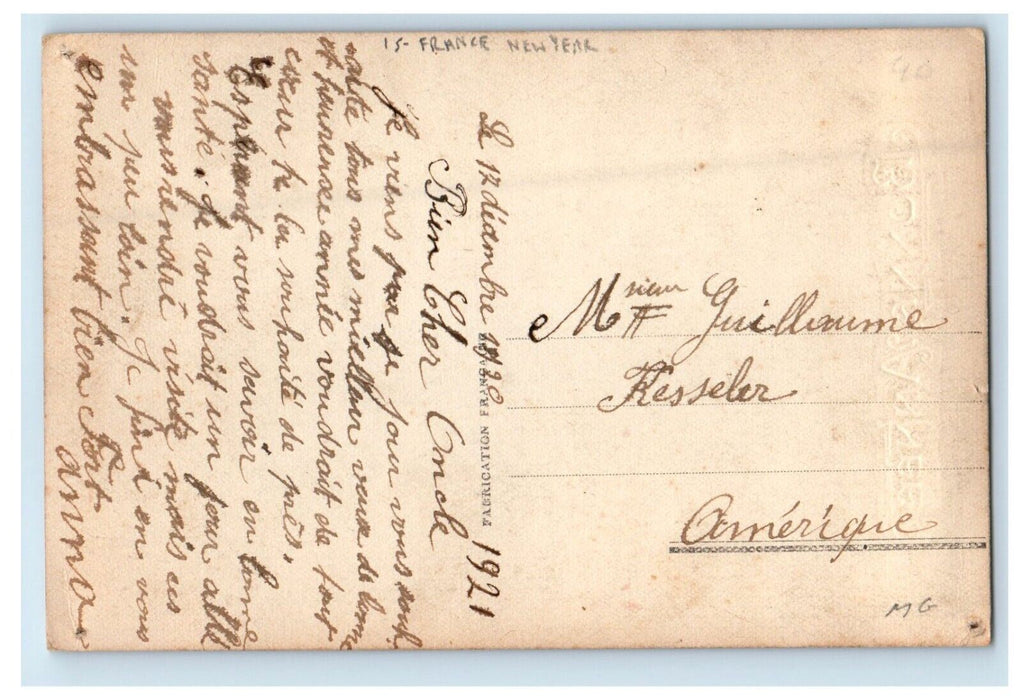 15- FRANCE NEW YEAR
Le 12 décembre 1920
1921
Bien Cher Oncle
Je viens par se jour vous souh
aité tous mes meilleur veux de bonne
et heureuse année voudrait de tout
cœur te la souhaité de près.
Espérant vous savoir en bonne
santé. Je voudrait un jour allé
vous rendre visite mais ces
un peu loin. Je finit en vous
embrassant bien Fort
Anna
FABRICATION FRANÇAISE
Msieur Guillaume
Kesseler
Amérique
MG